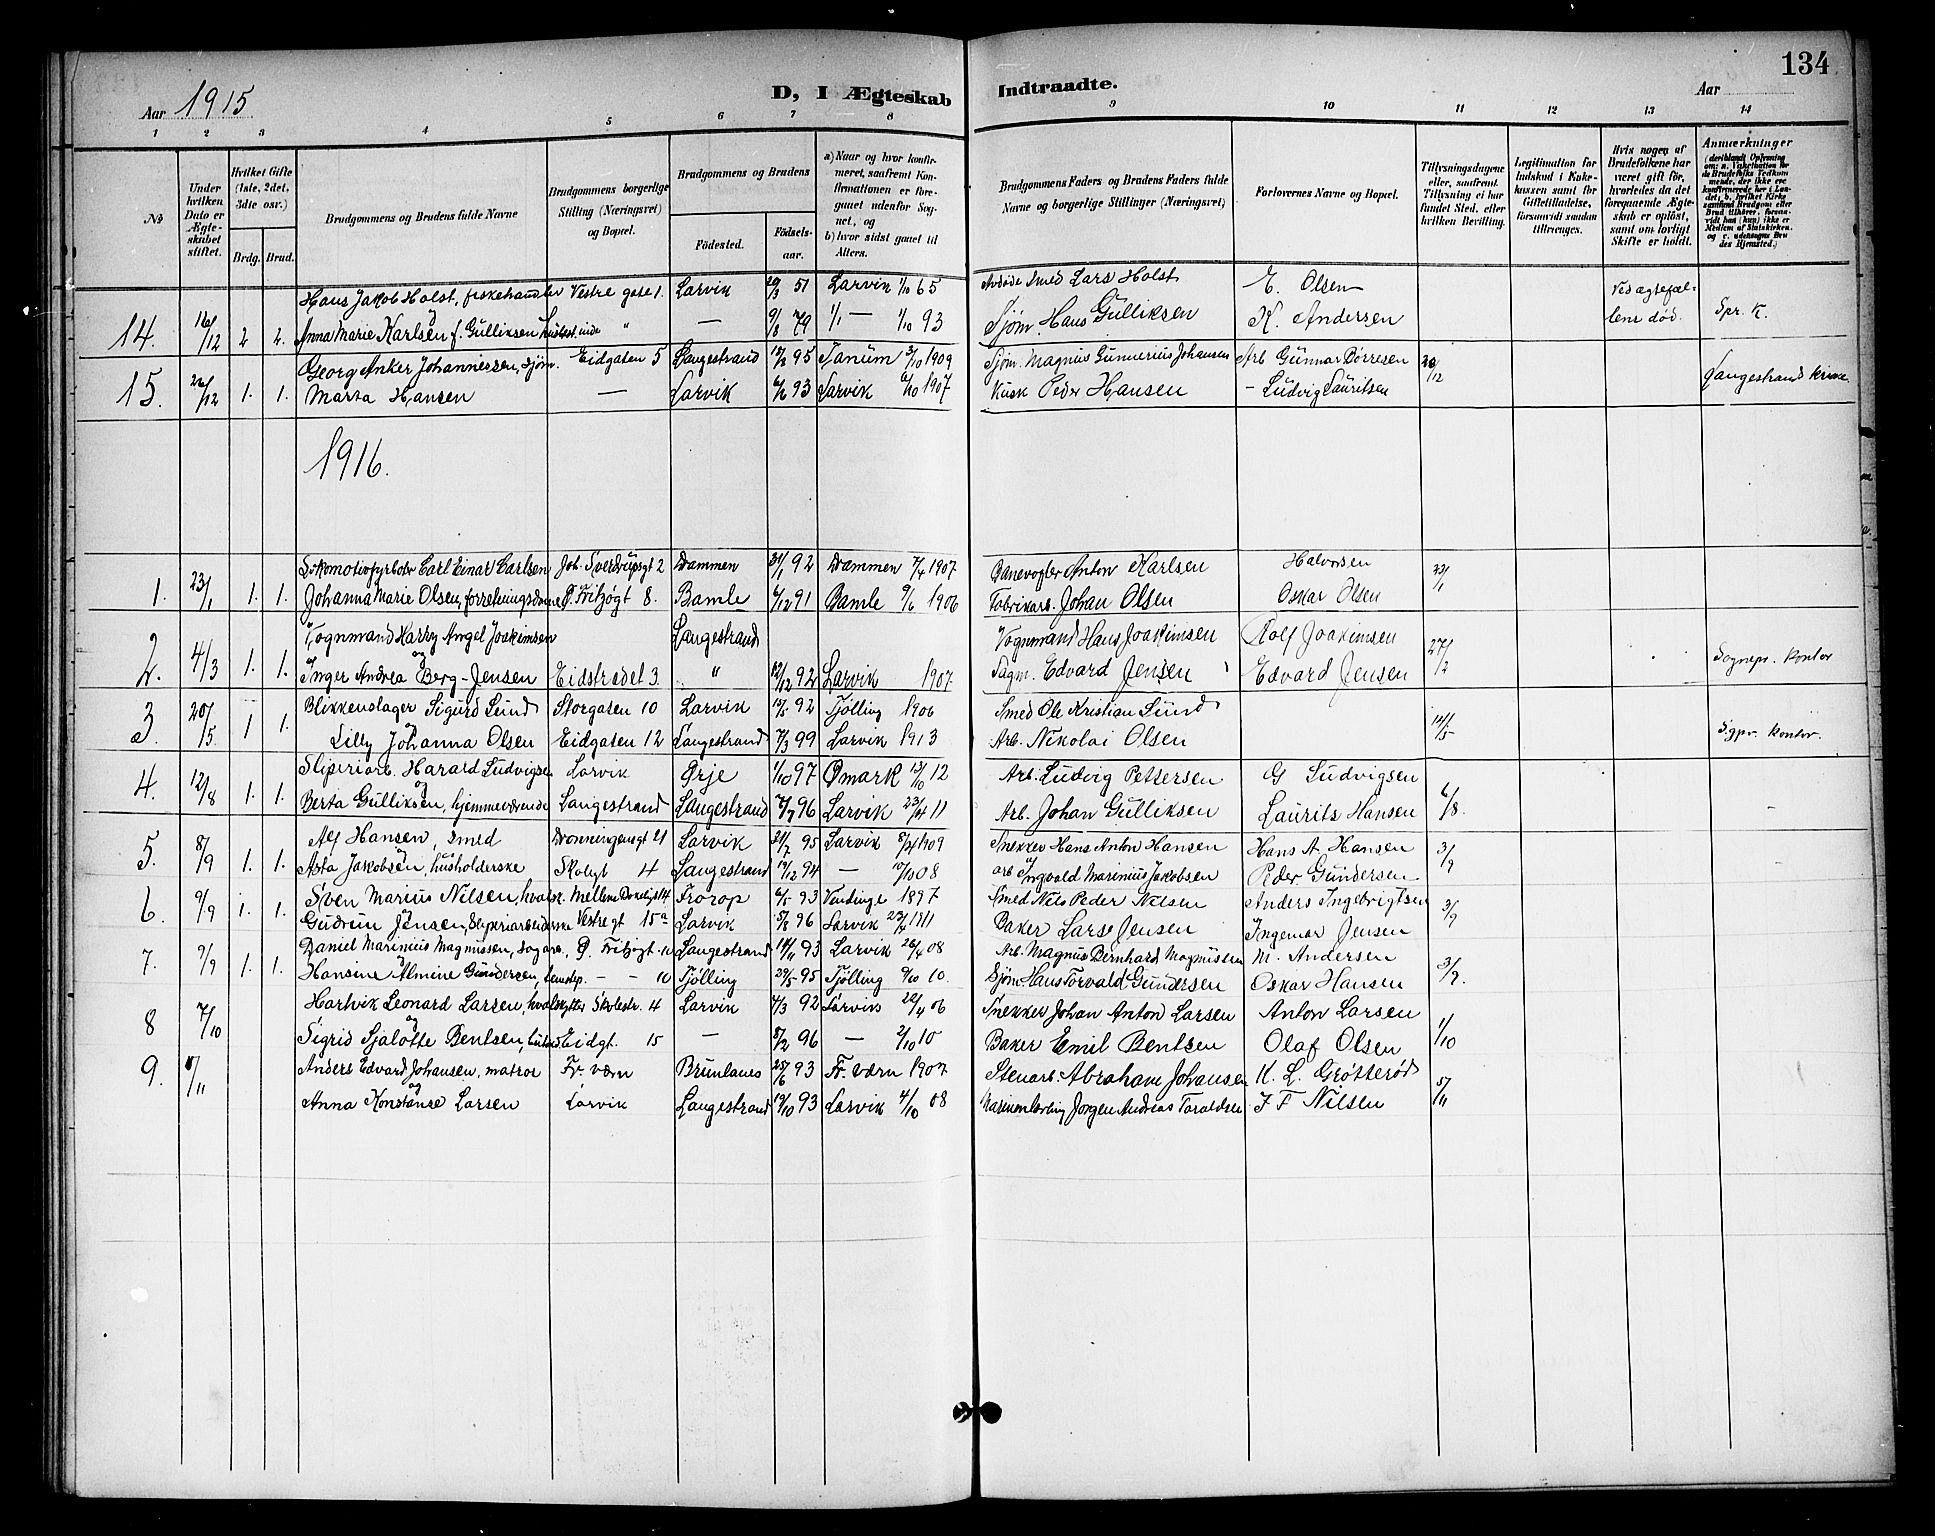 134
Aar 1915
D, I Ægteskab Indtraadte.
Aar
1 2 3 4 5 6 7 8 9 10 11 12 13 14
No
Under hvilken Dato er Ægteskabet stiftet.
Hvilket Gifte (1ste, 2det, 3die osv.)
Brdg. Brud.
Brudgommens og Brudens fulde Navne
Brudgommens borgerlige Stilling (Næringsvei) og Bopæl.
Brudgommens og Brudens
Födested.
Födselsaar.
a) Naar og hvor konfirmeret, saafremt Konfirmationen er foregaaet udenfor Sognet, og
b) hvor sidst gaaet til Alters.
Brudgommens Faders og Brudens Faders fulde Navne og borgerlige Stillinger (Næringsvei)
Forlovernes Navne og Bopæl.
Tillysningsdagene eller, saafremt Tillysning ei har fundet Sted, efter hvilken Bevilling.
Legitimation for Indskud i Enkekassen samt for Giftetilladelse, forsaavidt saadan tiltrænges.
Hvis nogen af Brudefolkene har været gift før, hvorledes da det foregaaende Ægteskab er opløst, samt om lovligt Skifte er holdt.
Anmærkninger
Hans Jakob Holst, fiskehandler Vestre gate 1. Larvik 29/3 51 Larvik 1/10 65 Avdøde Smed Lars Holst E. Olsen Ved ægtefæl-
14. 16/12 2 2. Anna Marie Karlsen f. Gulliksen " — 9/8 79 — 1/10 93 Sjøm. Hans Gulliksen K. Andersen lens død. Spr. K.
Georg Anker Johannessen, Sjøm. Eidgaten 5 Langestrand 95 Tanum 3/10 1909 Sjøm. Magnus Gunnerius Johansen Arb Gunnar Børresen
15. 26/12 1. 1. Marta Hansen — Larvik 93 Larvik 6/10 1907 Kusk Peder Hansen – Ludvig Lauritsen Langestrand kirke
1916.
Lokomotivfyrbøder Carl Einar Carlsen Joh. Sverdrupsgt 2 Dammen 31/1 92 Dammen 7/4 1907 Banevogter Anton Karlsen Halvorsen
1. 23/1 1. 1. Johanna Marie Olsen, forretningsdame P. Fritzøgt 8. Bamle 6/12 91 Bamle 9/6 1906 Fabrikarb. Johan Olsen Oskar Olsen 23/1
Vognmand Harry Angel Joakimsen Langestrand Vognmand Hans Joakimsen Rolf Joakimsen
og
2. 4/3 1. 1. Inger Andrea Berg-Jensen Eidstrædet 3 " 12/12 92 Larvik 1907 Sagm. Edvard Jensen Edvard Jensen 27/2 Sognepr. kontor
Blikkenslager Sigurd Lund Storgaten 10 Larvik 92 Tjølling 1906 Smed Ole Kristian Lund
3. 20/5 1 1. Lilly Johanna Olsen Eidgaten 12 Langestrand 7/3 99 Larvik 1913 Arb. Nikolai Olsen 14/5 Sgpr. kontor.
Sliperiarb. Harard Ludvigsen Larvik Ørje 1/10 97 Ømark 13/10 12 Arb. Ludvig Pettersen G Ludvigsen
og
4. 12/8 1. 1. Berta Gulliksen, hjemmeværende Langestrand Langestrand 7/7 96 Larvik 23/4 11 Arb. Johan Gulliksen Laurits Hansen 6/8.
Alf Hansen, Smed Dronningensgt 21 Larvik 21/7 95 Larvik 1909 Snekker Hans Anton Hansen Hans A. Hansen
5. 8/9 1. 1. Asta Jakobsen, husholderske Skolegt 4 Langestrand 19/12 94 — 10/10 08 arb Ingvald Marinius Jakobsen Peder Gundersen 3/9
Sven Marius Nilsen, Frörup 6/5 93 Vindinge 1897 Smed Nils Peder Nilsen Anders Ingebrigtsen
6. 9/9 1. 1. Gudrun Jensen, Sliperiarbeiderske Vestregt 15a Larvik 5/8 96 Larvik 23/4 1911 Baker Lars Jensen Ingemar Jensen 3/9
Daniel Marinius Magnussen, Sagarb. P. Fritzøgt 10 Langestrand 14/11 93 Larvik 26/4 08 Arb. Magnus Bernhard Magnussen M. Andersen
7. 9/9 1. 1. Hansine Almine Gundersen, — — 10 Tjølling 29/5 95 Tjølling 9/10 10. Sjøm Hans Torvald Gundersen Oskar Hansen 3/9.
Hartvik Leonard Larsen, hvalskytter Skolestr. 4 Larvik 4/3 92 Larvik 22/4 06 Snekker Johan Anton Larsen Anton Larsen
og
8 7/10 Sigrid Sjalotte Bentsen, Eidgt. 15 — 8/2 96 — 2/10 10 Baker Emil Bentsen Olaf Olsen 1/10
9. /11 Anders Edvard Johansen, matros Fr. værn Brunlanes 25/6 93 Fr. værn 1907 Stenarb. Abraham Johansen K. L. Grøtterød
og
Anna Konstanse Larsen Larvik Langestrand 19/10 93 Larvik 4/10 08 Jørgen Andreas Taraldsen J F Nilsen 5/11